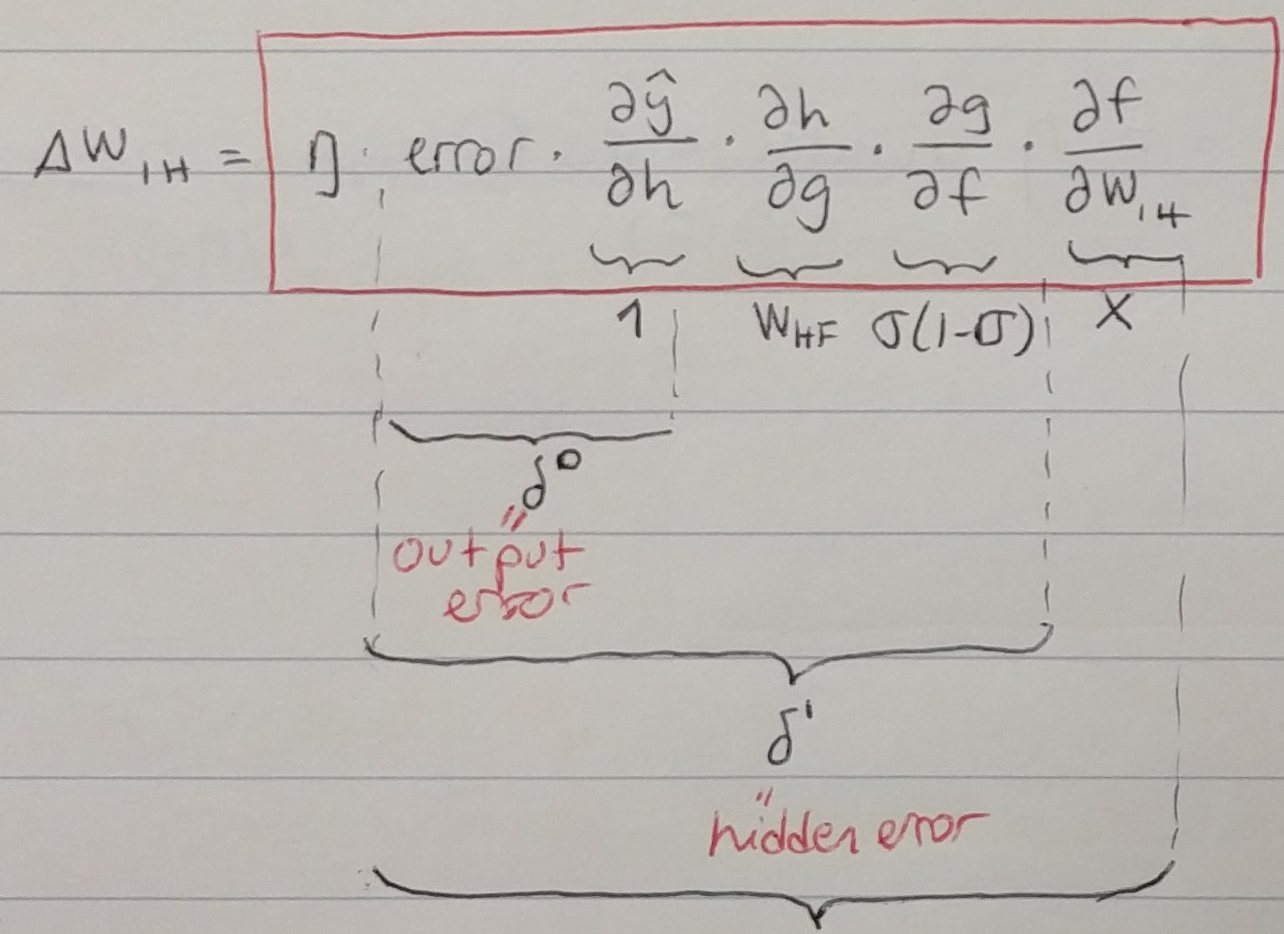 ΔW_IH = η · error · ∂ŷ/∂h · ∂h/∂g · ∂g/∂f · ∂f/∂W_IH
1 W_HF σ(1-σ) X
δ°
"
output
error
δ'
"
hidden error